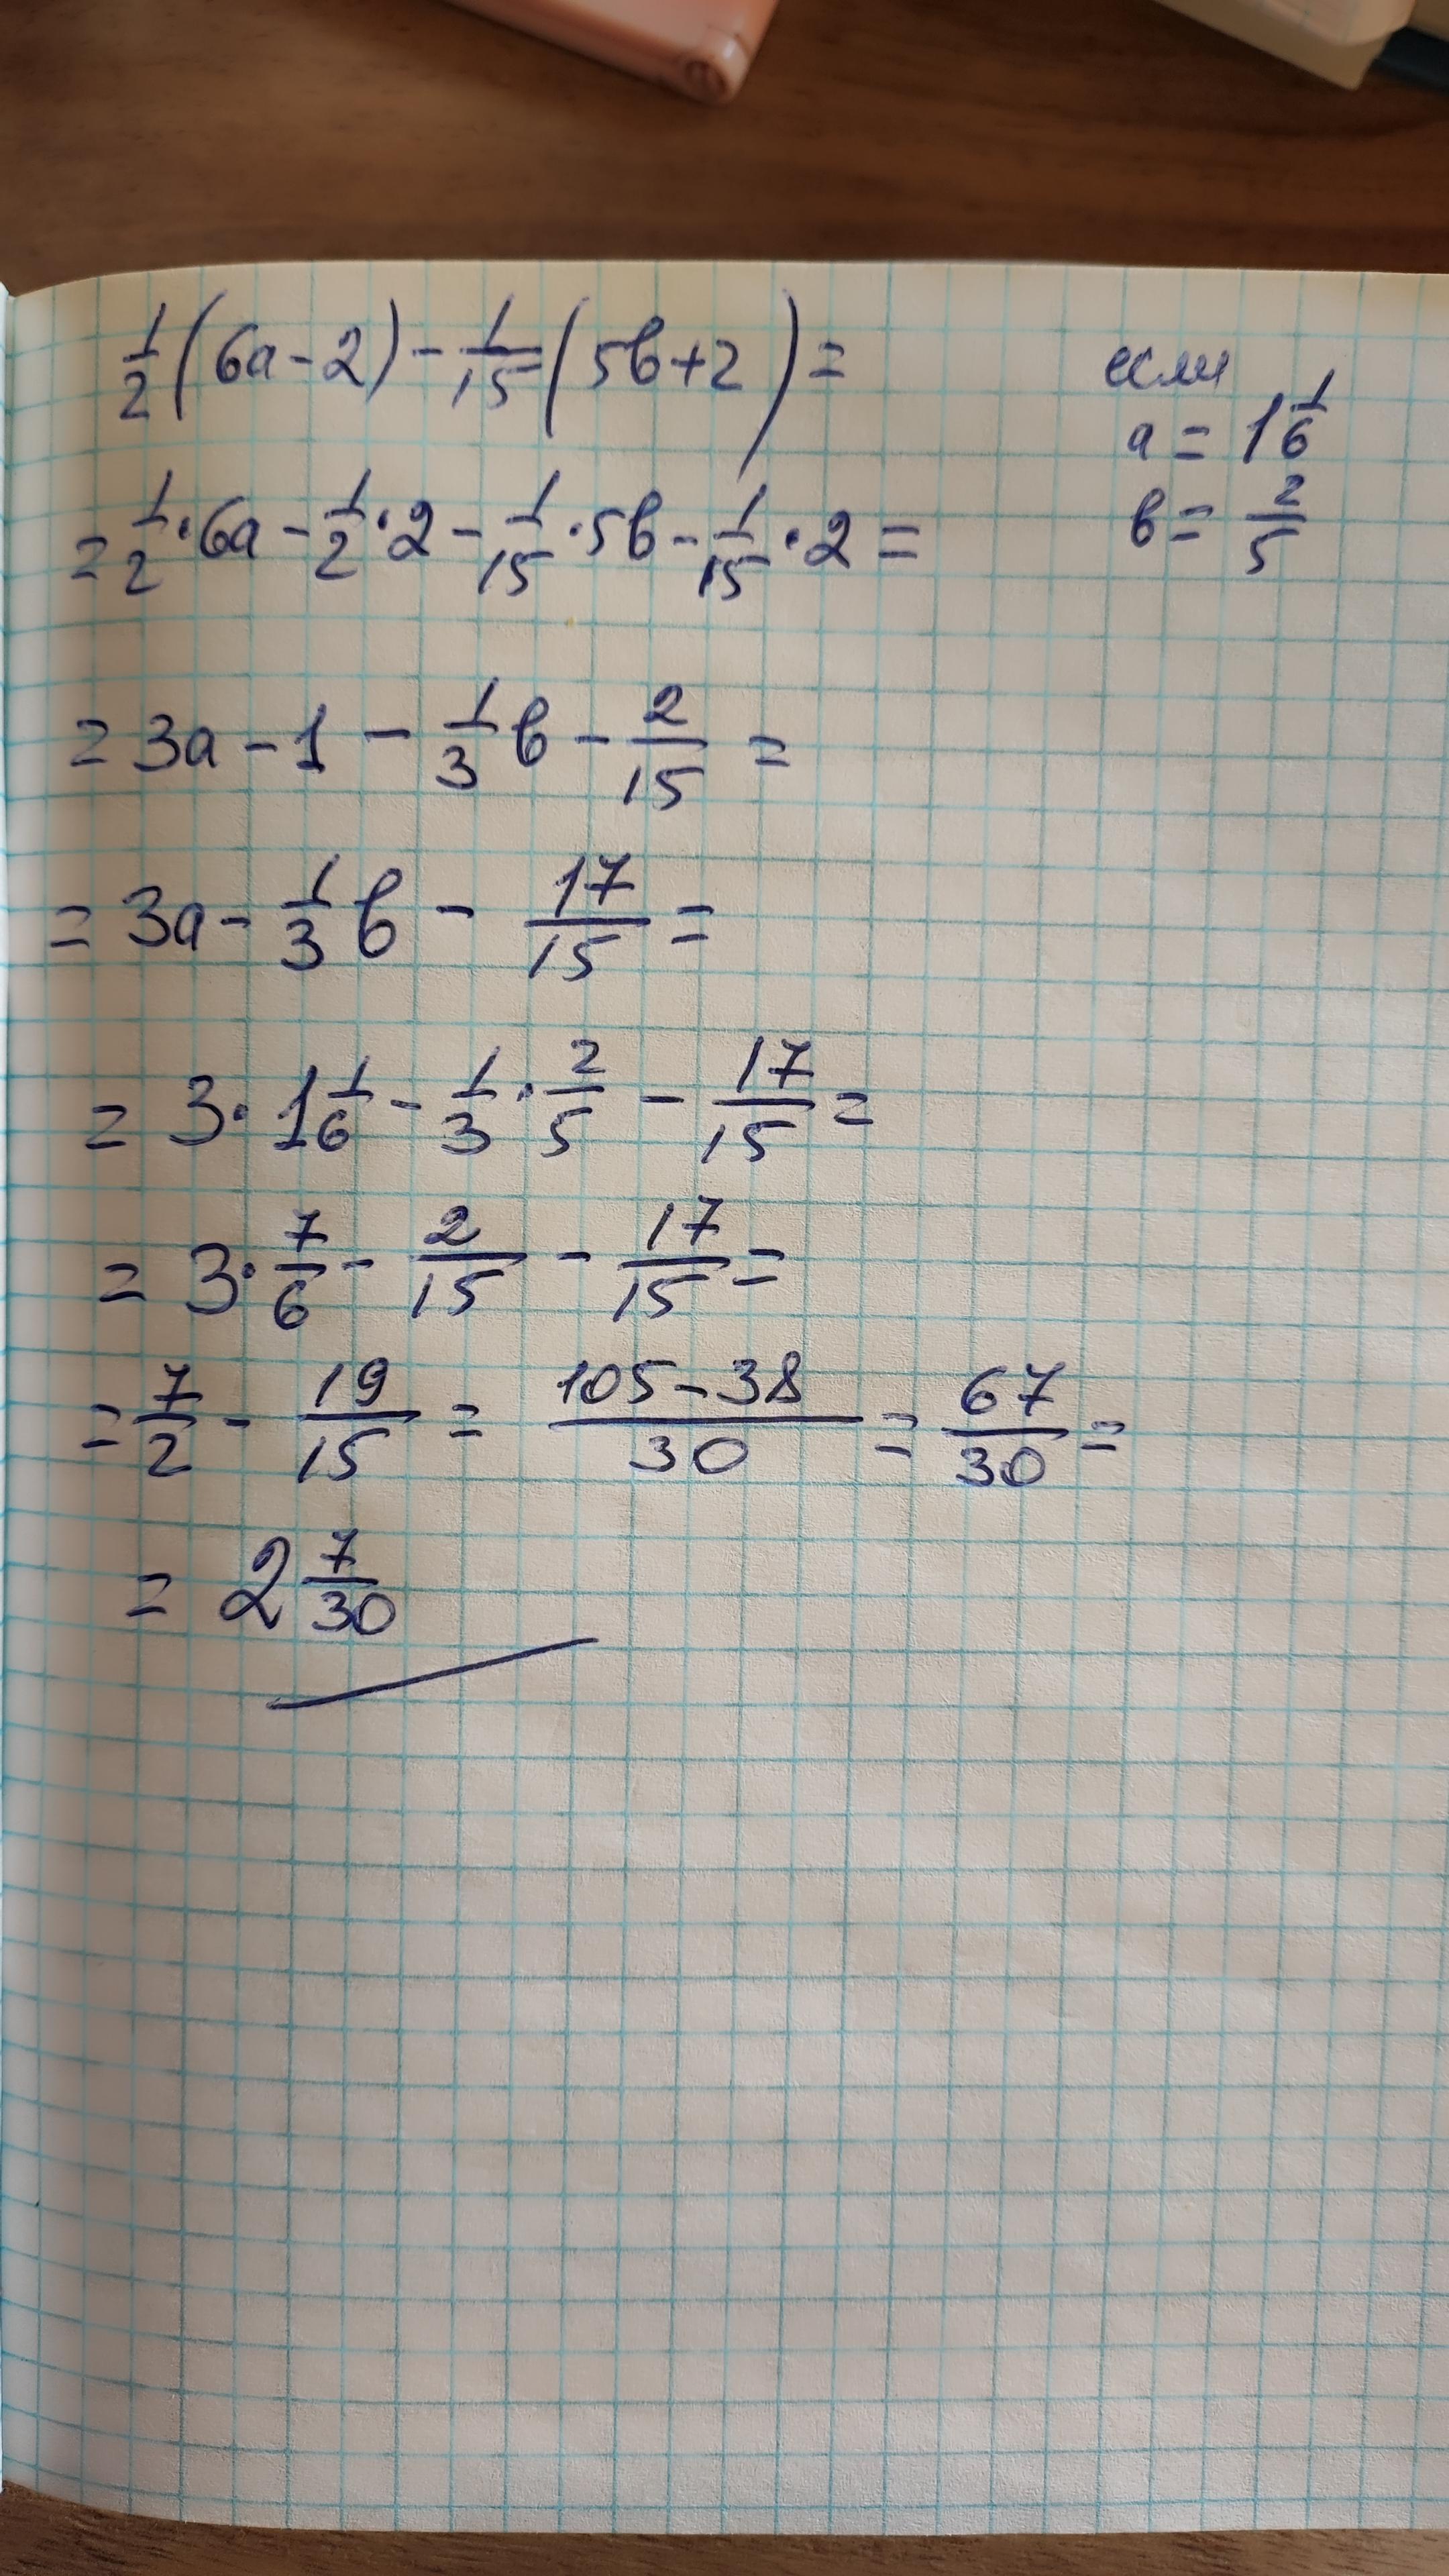 1/2(6а-2)-1/15(5в+2)=
если
а = 1 1/6
в = 2/5
=1/2·6а-1/2·2-1/15·5в-1/15·2=
=3а-1-1/3в-2/15=
=3а-1/3в-17/15=
=3·1 1/6-1/3·2/5-17/15=
=3·7/6-2/15-17/15=
=7/2-19/15=(105-38)/30=67/30=
=2 7/30